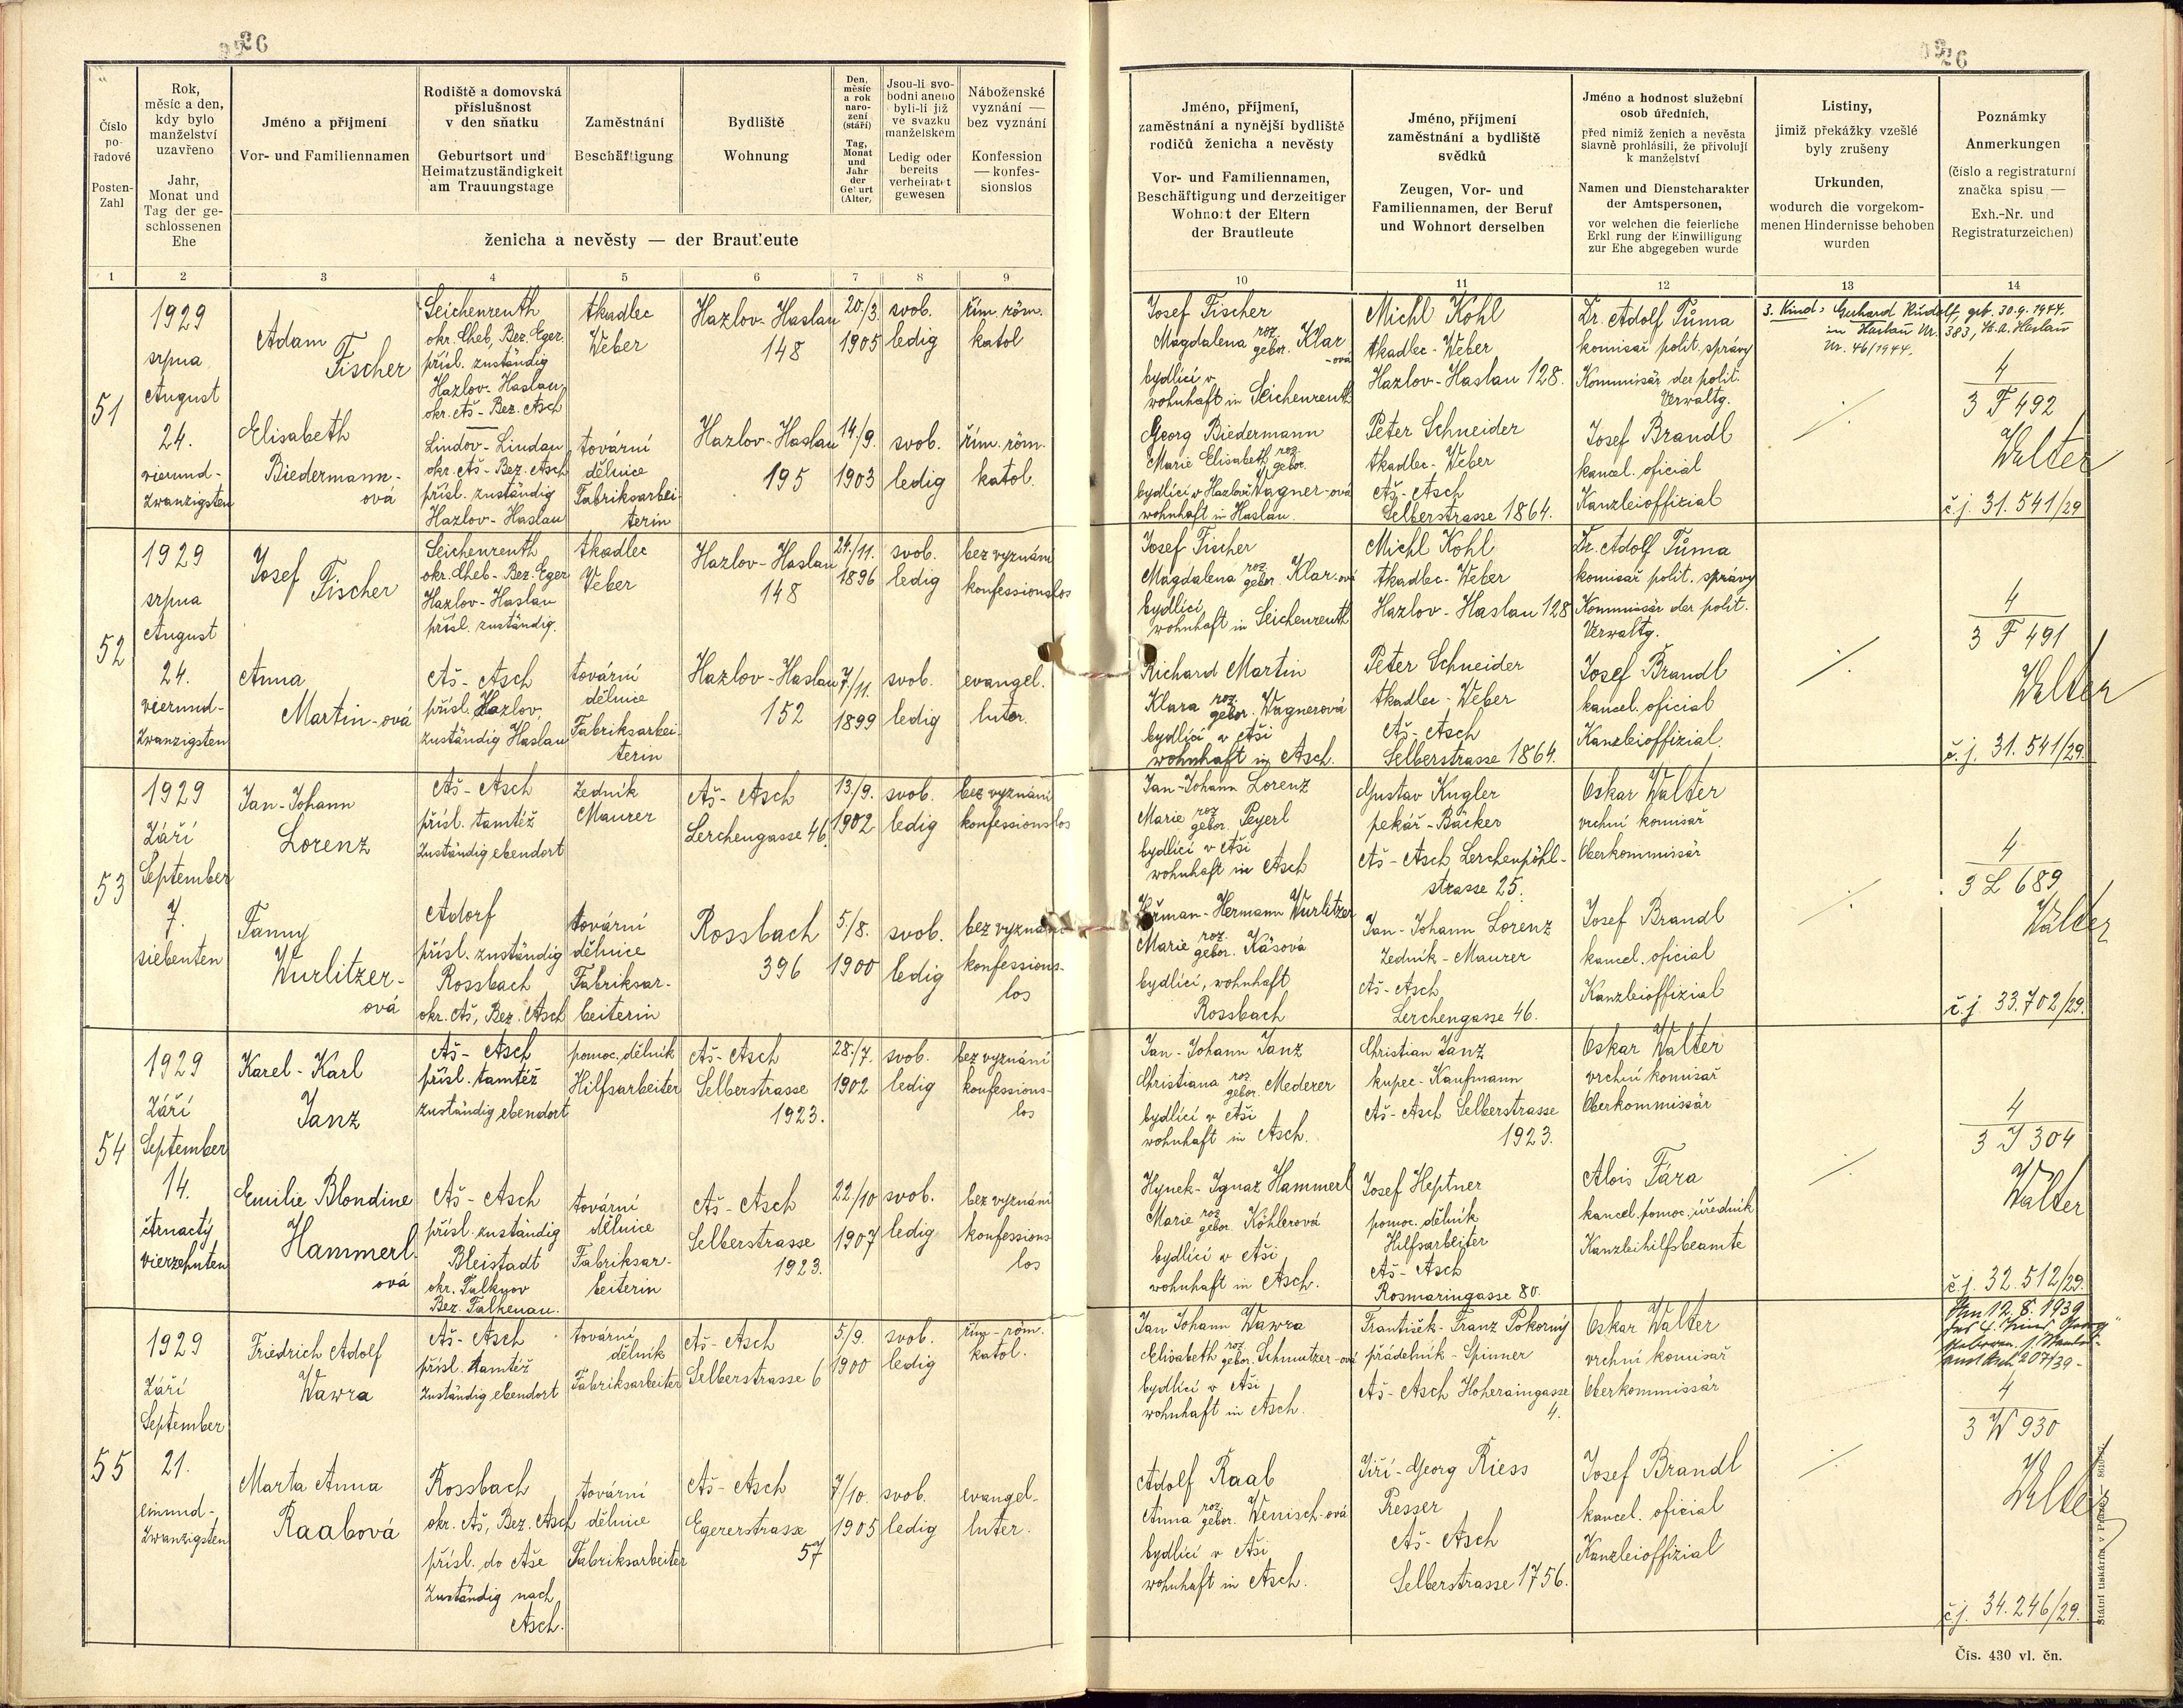 26
26
Číslo
po-
řadové
Posten-
Zahl
Rok,
měsíc a den,
kdy bylo
manželství
uzavřeno
Jahr,
Monat und
Tag der ge-
schlossenen
Ehe
Jméno a příjmení
Vor- und Familiennamen
Rodiště a domovská
příslušnost
v den sňatku
Geburtsort und
Heimatzuständigkeit
am Trauungstage
Zaměstnání
Beschäftigung
Bydliště
Wohnung
Den,
měsíc
a rok
naro-
zení
(stáří)
Tag,
Monat
und
Jahr
der
Geburt
(Alter)
Jsou-li svo-
bodni anebo
byli-li již
ve svazku
manželském
Ledig oder
bereits
verheiratet
gewesen
Náboženské
vyznání —
bez vyznání
Konfession
— konfes-
sionslos
ženicha a nevěsty — der Brautleute
Jméno, příjmení,
zaměstnání a nynější bydliště
rodičů ženicha a nevěsty
Vor- und Familiennamen,
Beschäftigung und derzeitiger
Wohnort der Eltern
der Brautleute
Jméno, příjmení
zaměstnání a bydliště
svědků
Zeugen, Vor- und
Familiennamen, der Beruf
und Wohnort derselben
Jméno a hodnost služební
osob úředních,
před nimiž ženich a nevěsta
slavně prohlásili, že přivolují
k manželství
Namen und Dienstcharakter
der Amtspersonen,
vor welchen die feierliche
Erklärung der Einwilligung
zur Ehe abgegeben wurde
Listiny,
jimiž překážky vzešlé
byly zrušeny
Urkunden,
wodurch die vorgekom-
menen Hindernisse behoben
wurden
Poznámky
Anmerkungen
(číslo a registraturní
značka spisu —
Exh.-Nr. und
Registraturzeichen)
1 2 3 4 5 6 7 8 9 10 11 12 13 14
51
1929
srpna
August
24.
vierund-
zwanzigsten
Adam
Fischer
Seichenreuth
okr. Cheb, Bez. Eger
přísl. zuständig
Hazlov-Haslau,
okr. Aš - Bez. Asch
tkadlec
Weber
Hazlov-Haslau
148
20/3.
1905
svob.
ledig
řím. röm.
katol
Elisabeth
Biedermann-
ová
Lindov-Lindau
okr. Aš - Bez. Asch
přísl. zuständig
Hazlov-Haslau
tovární
dělnice
Fabriksarbei-
terin
Hazlov-Haslau
195
14/9.
1903
svob.
ledig
řím. röm.
katol.
Josef Fischer
Magdalena roz. gebor. Klar
-ová
bydlící v
wohnhaft in Seichenreuth
Georg Biedermann
Marie Elisabeth roz. gebor.
bydlící v Hazlově Wagner-ová
wohnhaft in Haslau.
Michl Kohl
tkadlec-Weber
Hazlov-Haslau 128.
Peter Schneider
tkadlec-Weber
Aš-Asch
Selberstrasse 1864.
Dr. Adolf Tůma
komisař polit. správy
Kommissär der polit.
Verwaltg.
Josef Brandl
kancel. oficial
Kanzleioffizial
3. Kind: Gerhard Rudolf, geb. 30.9.1944.
in Haslau Nr. 383, St. A. Haslau
Nr. 46/1944.
4
3 F 492
Walter
č.j. 31.541/29
52
1929
srpna
August
24.
vierund-
zwanzigsten
Josef
Fischer
Seichenreuth
okr. Cheb - Bez. Eger
Hazlov-Haslau
přísl. zuständig.
tkadlec
Weber
Hazlov-Haslau
148
24./11.
1896
svob.
ledig
bez vyznání
konfessionslos
Anna
Martin-ová
Aš-Asch
přísl. Hazlov,
zuständig Haslau
tovární
dělnice
Fabriksarbei-
terin
Hazlov-Haslau
152
7/11.
1899
svob.
ledig
evangel.
luter.
Josef Fischer
Magdalena roz. gebor. Klar-ová
bydlící
wohnhaft in Seichenreuth
Richard Martin
Klara roz. gebor. Wagnerová
bydlící v Aši
wohnhaft in Asch.
Michl Kohl
tkadlec-Weber
Hazlov-Haslau 128
Peter Schneider
tkadlec-Weber
Aš-Asch
Selberstrasse 1864.
Dr. Adolf Tůma
komisař polit. správy
Kommissär der polit.
Verwaltg.
Josef Brandl
kancel. oficial
Kanzleioffizial.
4
3 F 491
Walter
č.j. 31.541/29.
53
1929
Září
September
7.
siebenten
Jan-Johann
Lorenz
Aš-Asch
přísl. tamtéž
Zuständig ebendort
zedník
Maurer
Aš-Asch
Lerchengasse 46.
13/9.
1902
svob.
ledig
bez vyznání
konfessionslos
Fanny
Wurlitzer-
ová
Adorf
přísl. zuständig
Rossbach
okr. Aš, Bez. Asch
tovární
dělnice
Fabriksar-
beiterin
Rossbach
396
5/8.
1900
svob.
ledig
bez vyznání
konfessions-
los
Jan-Johann Lorenz
Marie roz. gebor. Peyerl
bydlící v Aši
wohnhaft in Asch
Heřman-Hermann Wurlitzer
Marie roz. gebor. Käsová
bydlící, wohnhaft
Rossbach
Gustav Kugler
pekář-Bäcker
Aš-Asch Lerchenpöhl-
strasse 25.
Jan-Johann Lorenz
Zedník-Maurer
Aš-Asch
Lerchengasse 46.
Oskar Walter
vrchní komisař
Oberkommissär
Josef Brandl
kancel. oficial
Kanzleioffizial
4
3 L 689
Walter
č.j. 33.702/29.
54
1929
Září
September
14.
čtrnactý
vierzehnten
Karel-Karl
Janz
Aš-Asch
přísl. tamtéž
zuständig ebendort
pomoc. dělník
Hilfsarbeiter
Aš-Asch
Selberstrasse
1923.
28./7.
1902
svob.
ledig
bez vyznání
konfessions-
los
Emilie Blondine
Hammerl
ová
Aš-Asch
přísl. zuständig
Bleistadt
okr. Falknov
Bez. Falkenau.
tovární
dělnice
Fabriksar-
beiterin
Aš-Asch
Selberstrasse
1923.
22./10
1907
svob.
ledig
bez vyznání
konfessions
los
Jan-Johann Janz
Christiana roz. gebor. Mederer
bydlící v Aši
wohnhaft in Asch.
Hynek-Ignaz Hammerl
Marie roz. gebor. Köhlerová
bydlící v Aši
wohnhaft in Asch.
Christian Janz
kupec-Kaufmann
Aš-Asch Selberstrasse
1923.
Josef Heptner
pomoc. dělník
Hilfsarbeiter
Aš-Asch
Rosmaringasse 80.
Oskar Walter
vrchní komisař
Oberkommissär
Alois Fára
kancel. pomoc. úředník
Kanzleihilfsbeamte
4
3 J 304
Walter
č.j. 32.512/29.
55
1929
Září
September
21.
einund-
zwanzigsten
Friedrich Adolf
Wawra
Aš-Asch
přísl. tamtéž
Zuständig ebendort
tovární
dělník
Fabriksarbeiter
Aš-Asch
Selberstrasse 6
5/9.
1900
svob.
ledig
řím-röm.
katol.
Marta Anna
Raabová
Rossbach
okr. Aš, Bez. Asch
přísl. do Aše
Zuständig nach
Asch.
tovární
dělnice
Fabriksarbeiter
Aš-Asch
Egererstrasse
57
7/10.
1905
svob.
ledig
evangel-
luter.
Jan Johann Wawra
Elisabeth roz. gebor. Schmutzer-ová
bydlící v Aši
wohnhaft in Asch.
Adolf Raab
Anna roz. gebor. Wenisch-ová
bydlící v Aši
wohnhaft in Asch.
František-Franz Pokorný
přádelník-Spinner
Aš-Asch Hoheraingasse
4.
Jiří-Georg Riess
Presser
Aš-Asch
Selberstrasse 1756.
Oskar Walter
vrchní komisař
Oberkommissär
Josef Brandl
kancel. oficial
Kanzleioffizial
Am 12.8.1939
geboren
Asch 207/39-
4
3 W 930
Walter
č.j. 34.246/29.
Státní tiskárna v Praze.
Čís. 430 vl. čn.